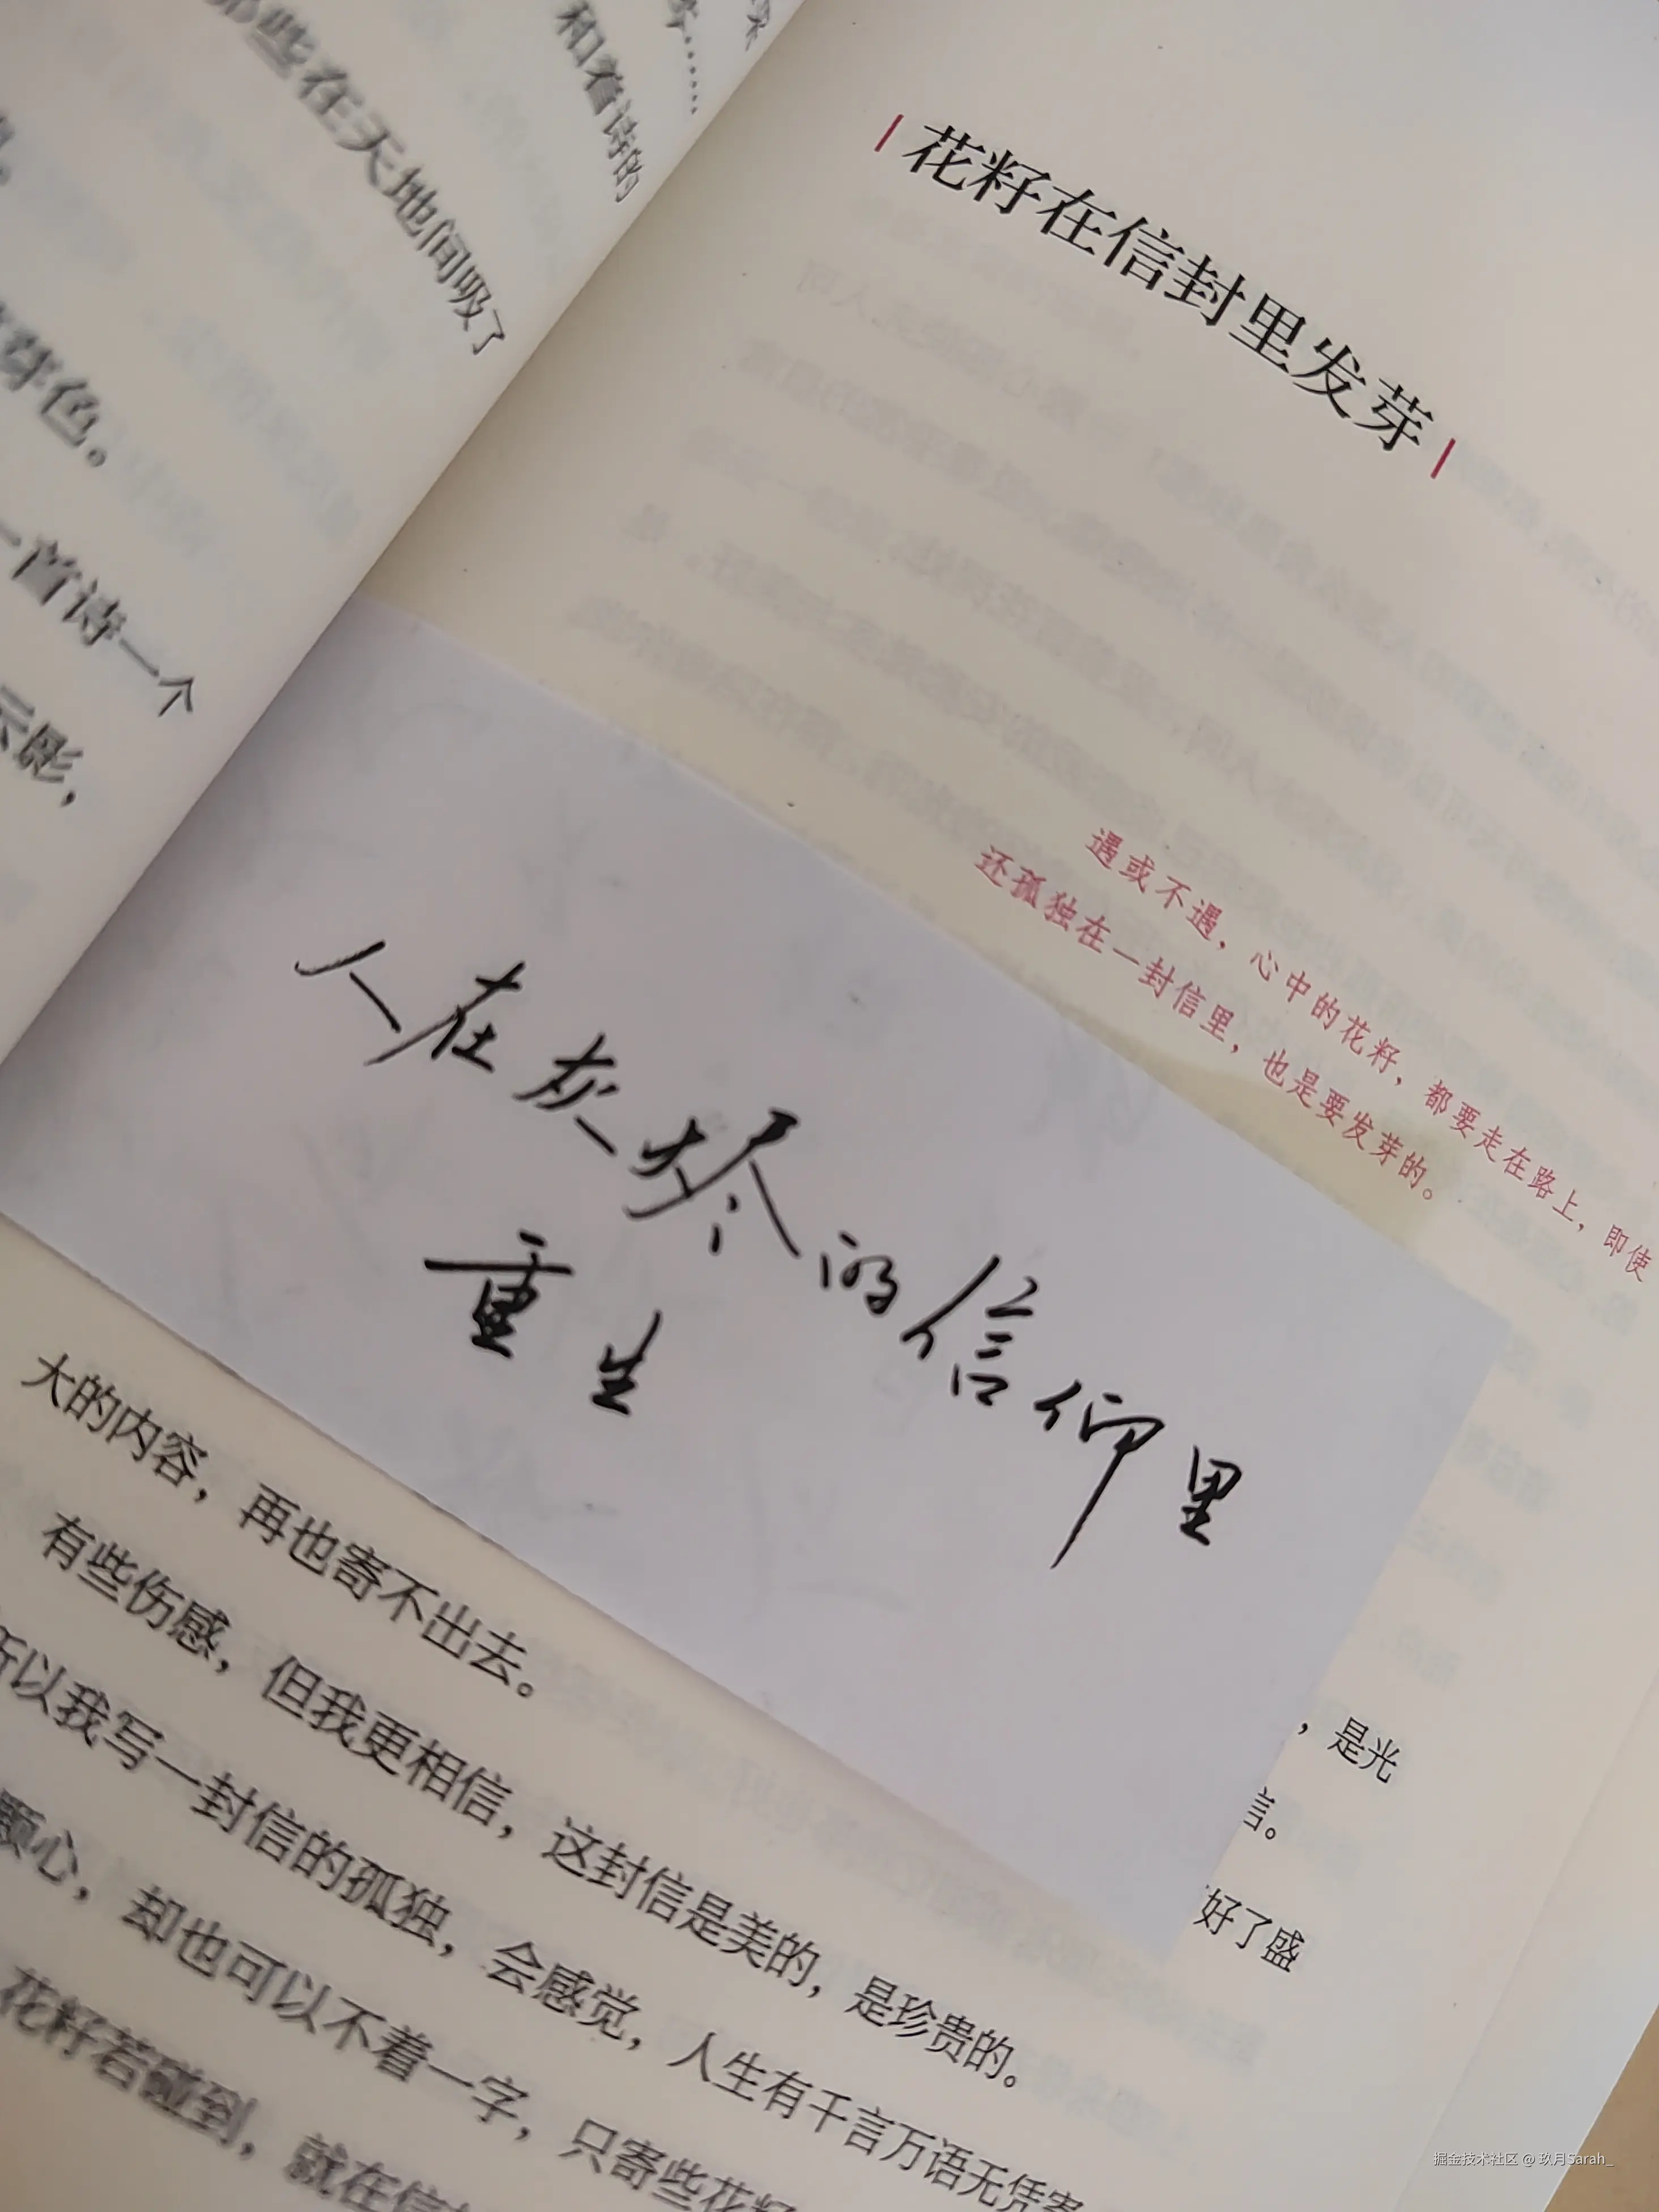 那些在天地间吸了
和着诗的
芽色。
一首诗一个
云影，
花籽在信封里发芽
遇或不遇，心中的花籽，都要走在路上，即使
还孤独在一封信里，也是要发芽的。
人在灰烬的信仰里
重生
，是光
信。
好了盛
大的内容，再也寄不出去。
有些伤感，但我更相信，这封信是美的，是珍贵的。
所以我写一封信的孤独，会感觉，人生有千言万语无凭寄
颗心，却也可以不着一字，只寄些花籽
花籽若碰到，就在信封
掘金技术社区 @ 玖月Sarah_